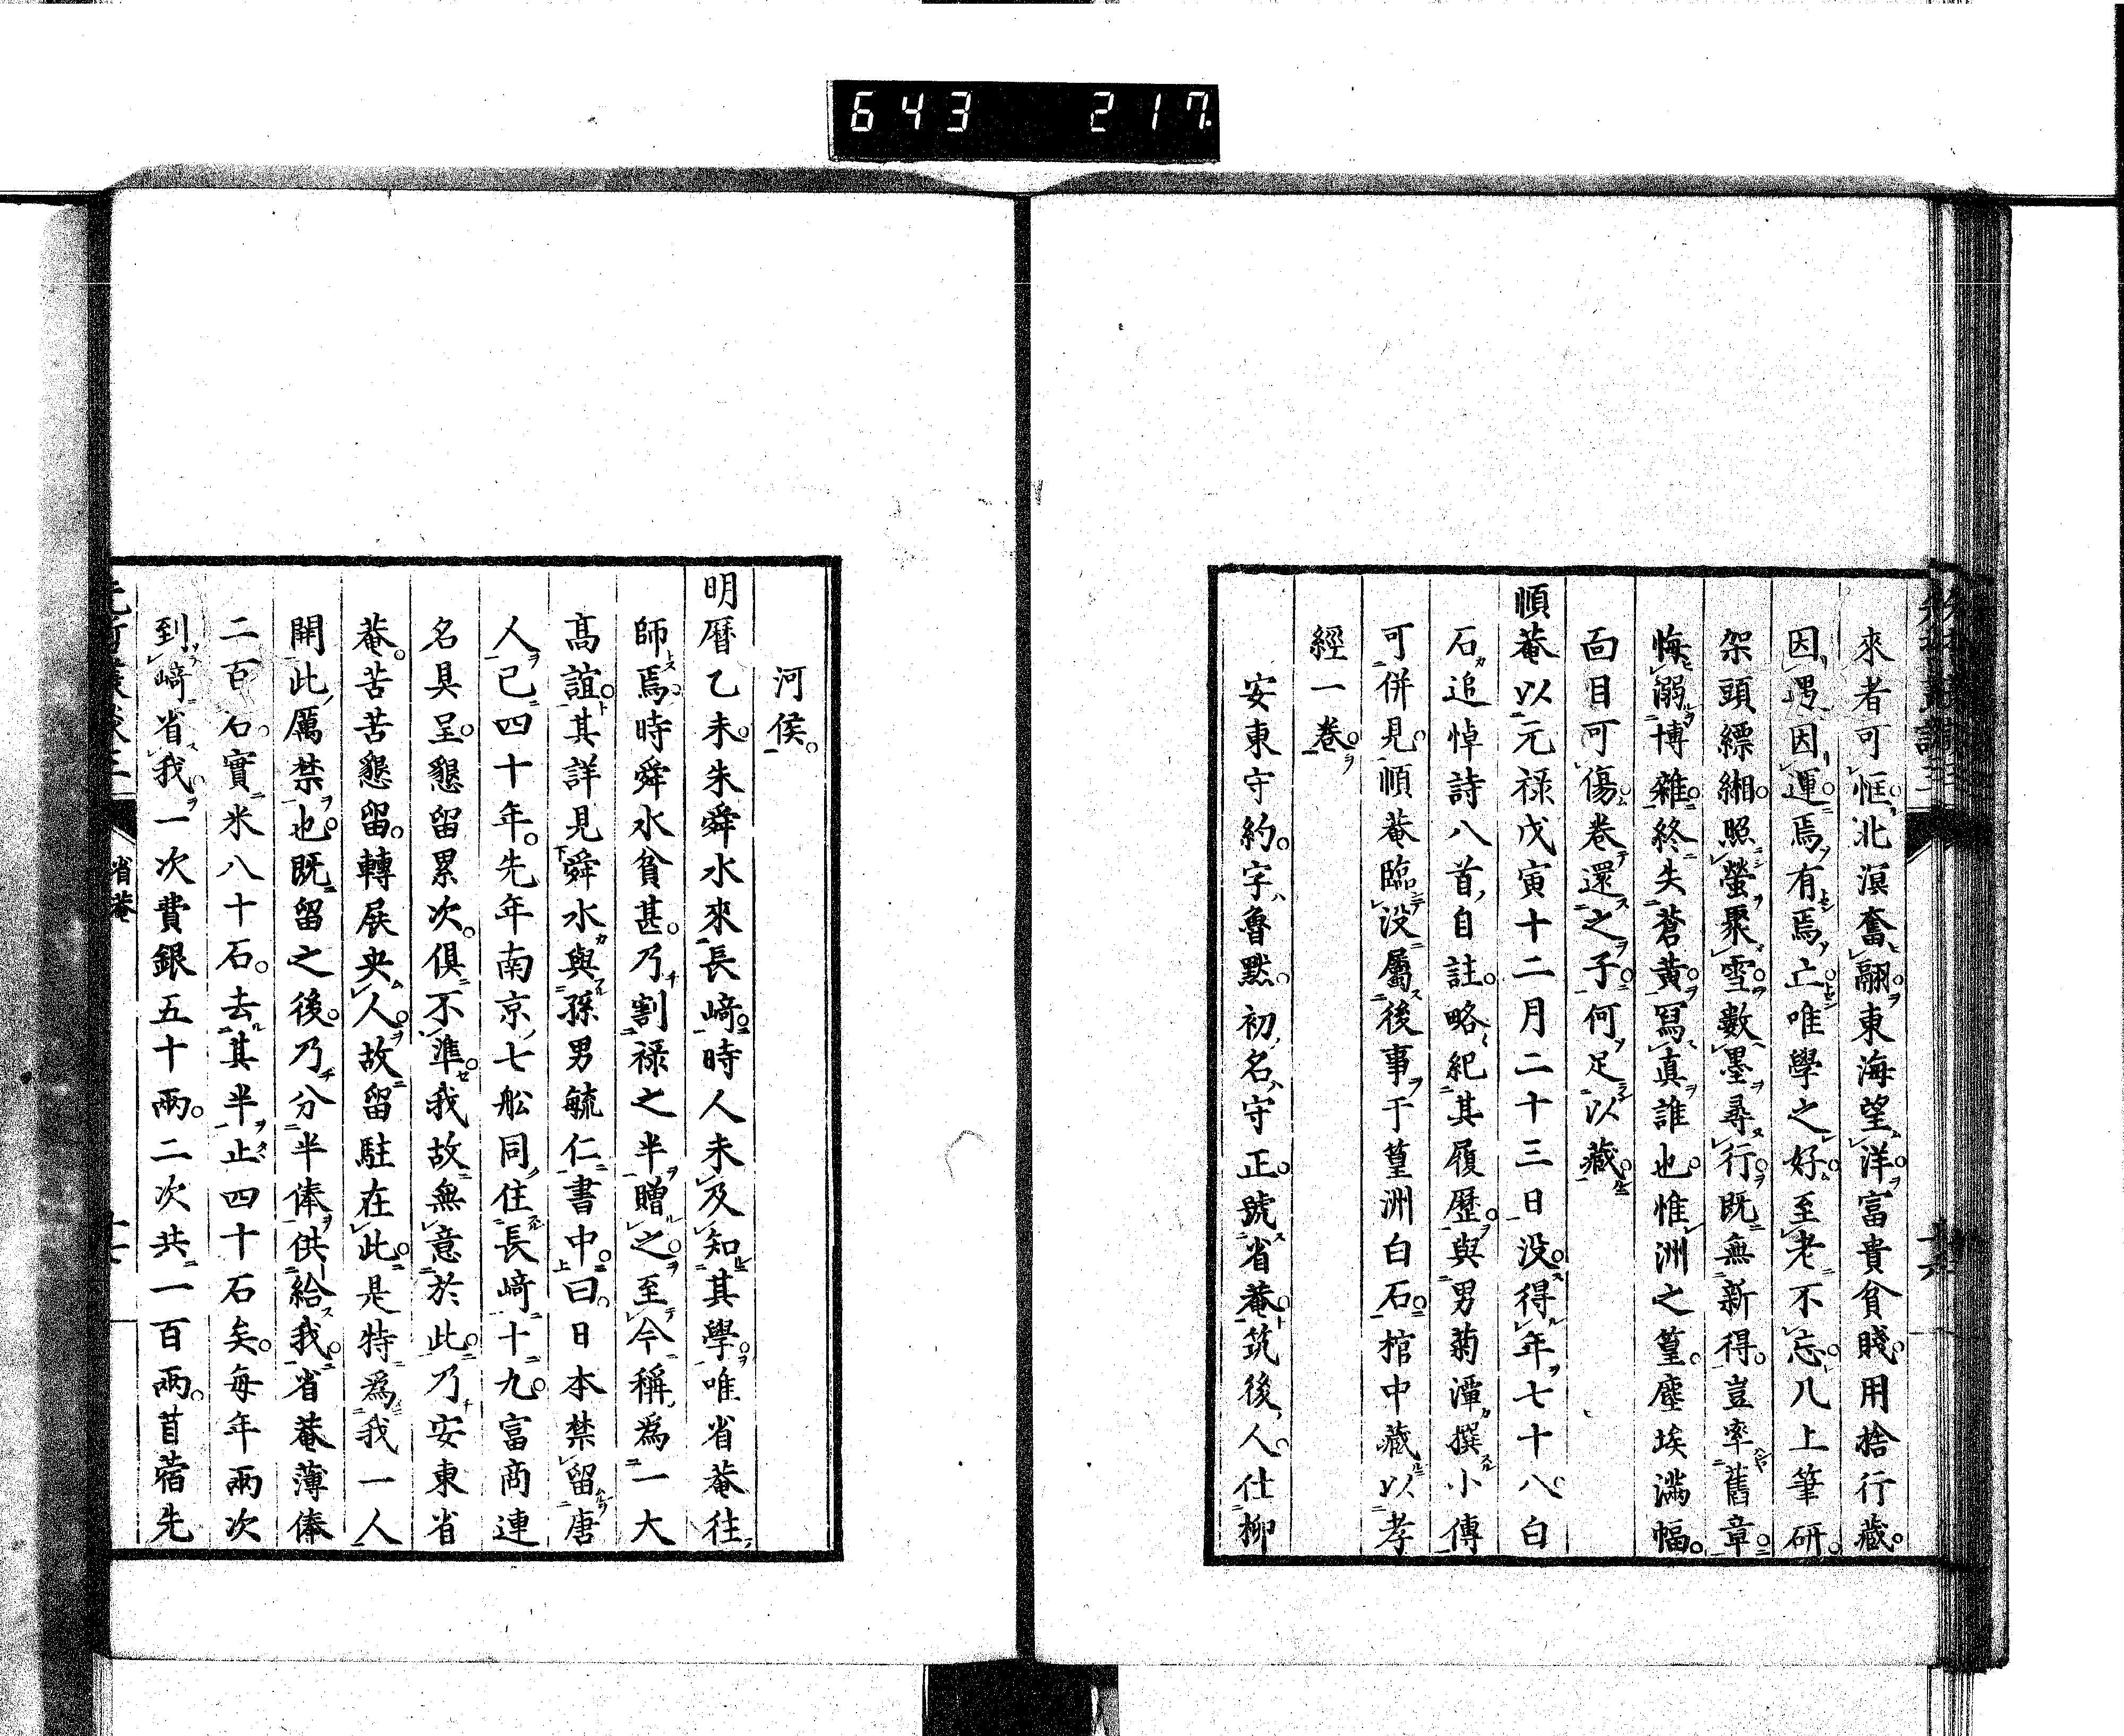 643 217.
來者可恇北溟奮翮東海望洋富貴貧賤用捨行藏
因遇因運焉有焉亡唯學之好至老不忘几上筆研
架頭縹緗照螢聚雪數墨尋行既無新得豈率舊章
悔溺博雜終失蒼黃冩真誰也惟洲之篁塵埃滿幅
面目可傷卷還之子何足以藏
順菴以元禄戊寅十二月二十三日没得年七十八白
石追悼詩八首自註略紀其履歴與男菊潭撰小傳
可併見順菴臨没屬後事于篁洲白石棺中藏以孝
經一卷
安東守約字魯默初名守正號省菴筑後人仕柳
河侯
明曆乙未朱舜水來長﨑時人未及知其學唯省菴往
師焉時舜水貧甚乃割禄之半贈之至今稱爲一大
髙誼其詳見舜水與孫男毓仁書中曰日本禁留唐
人已四十年先年南京七舩同住長﨑十九富商連
名具呈懇留累次俱不準我故無意於此乃安東省
菴苦苦懇留轉展央人故留駐在此是特爲我一人
開此厲禁也既留之後乃分半俸供給我省菴薄俸
二百石實米八十石去其半止四十石矣毎年兩次
到﨑省我一次費銀五十兩二次共一百兩苜蓿先
省菴